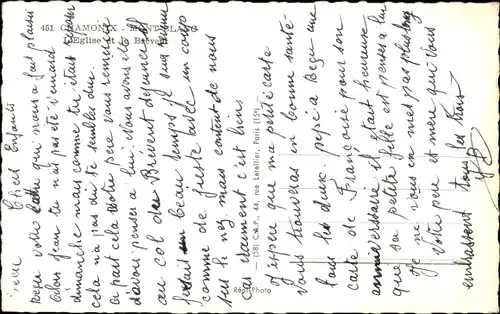 451 CHAMONIX - MONT-BLANC
L'Eglise et le Brévent
Chers Enfants
Reçu votre lettre qui nous a fait plaisir
Jean tu n'as pas été
dimanche mais comme tu étais
cela n'a pas dû te sembler dur
à part cela votre père vous remercie
d'avoir pensé à lui. Nous avons été
au col de Brévent dimanche
faisait un beau temps je suis
comme de juste avec un coup
sur le nez mais content de nous
Car vraiment c'est bien
J'espère que ma petite carte
vous trouveras en bonne santé
tous les deux. pépé a reçu une
carte de Françoise pour son
anniversaire il était heureux
que sa petite fille est pensée a lui
je ne vous en mes pas plus long
Votre père et mère qui vous
embrassent tous les trois
(58) C.A.P., 44, rue Letellier, Paris (15e)
Réal-Photo